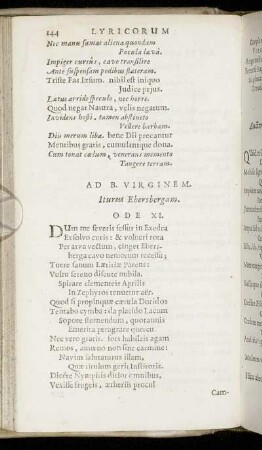 144 LYRICORUM
Nec manu sumas aliena quondam
Pocula lævâ.
Impiger cursûs, cavo transilire
Ante suspensam pedibus stateram.
Triste Fas Æsum. nihil est iniquo
Judice pejus.
Lætus arride speculo, nec horre.
Quod negat Natura, velis negatum.
Invidens hosti, tamen abstineto
Vellere barbam.
Diis merum liba. bene Dii precantur
Mentibus gratis, cumulantque dona.
Cum tonat cælum, venerans memento
Tangere terram.
AD B. VIRGINEM.
Iturus Ebersbergam.
ODE XI.
DUm me severis fessus in Exedra
Exsolvo curis: & volucri rota
Per arva vectum, cinget Ebers-
berga cavo nemorum recessu;
Tuere sanum Lætitiæ Parens:
Vultu sereno discute nubila.
Spirare clementeis Aprilis
In Zephyros tenuetur aër.
Quod si propinquæ cærula Doridos
Tentabo cymba: da placido lacum
Sopore sternendum, quotannis
Emerita peragrare quercu.
Nec vero gratis. fors habilis agam
Remos, amœno non sine carmine:
Navim salutaturus illam,
Quæ oraculum geris Institoris.
Dicère Nymphis dictor omnibus,
Vexisse frugeis, ætheris procul
Cam-